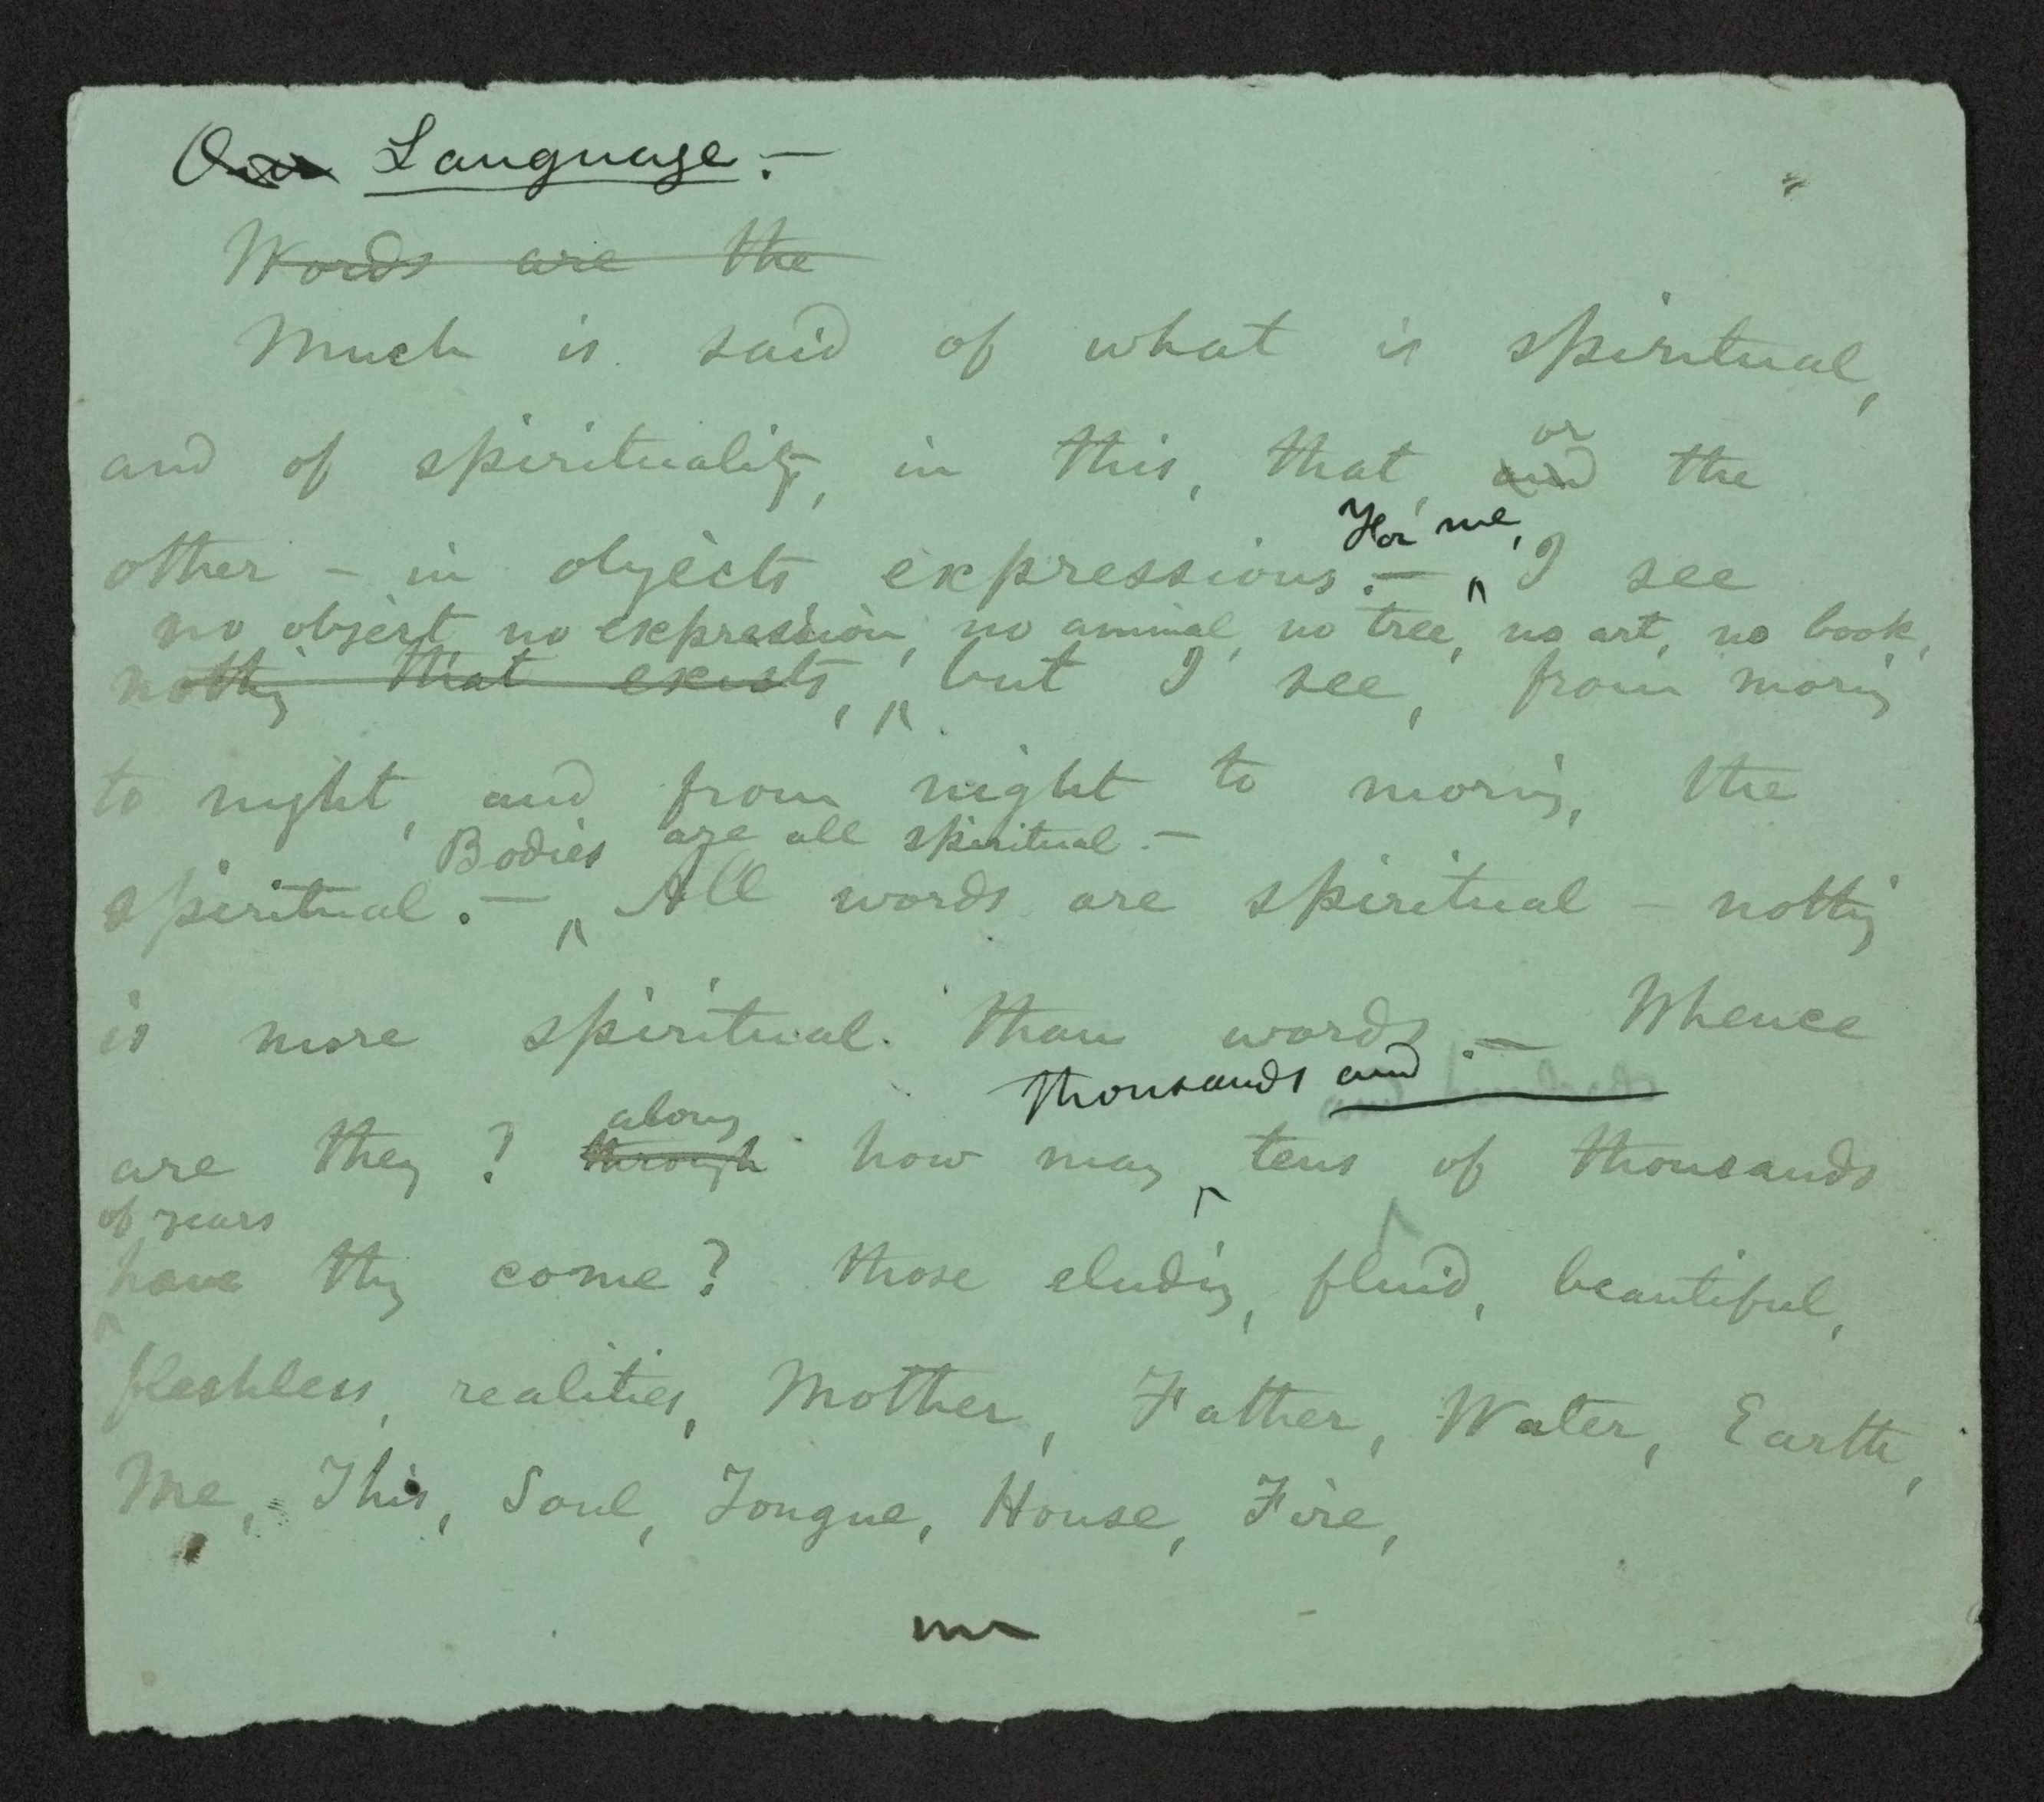 Our Language.—
Words are the
Much is said of what is spiritual,
and of spirituality, in this, that, and the
or
other – in objects, expressions.—
For me,
I see
no object, no expression, no animal, no tree, no art, no book,
nothing that exists, but I see, from morning
to night, and from night to morning, the
Bodies are all spiritual.—
spiritual.— All words are spiritual – nothing
is more spiritual than words.— Whence
thousands and
are they? through how many tens of thousands
along
of years
have they come? those eluding, fluid, beautiful,
fleshless, realities, Mother, Father, Water, Earth,
Me, This, Soul, Tongue, House, Fire,